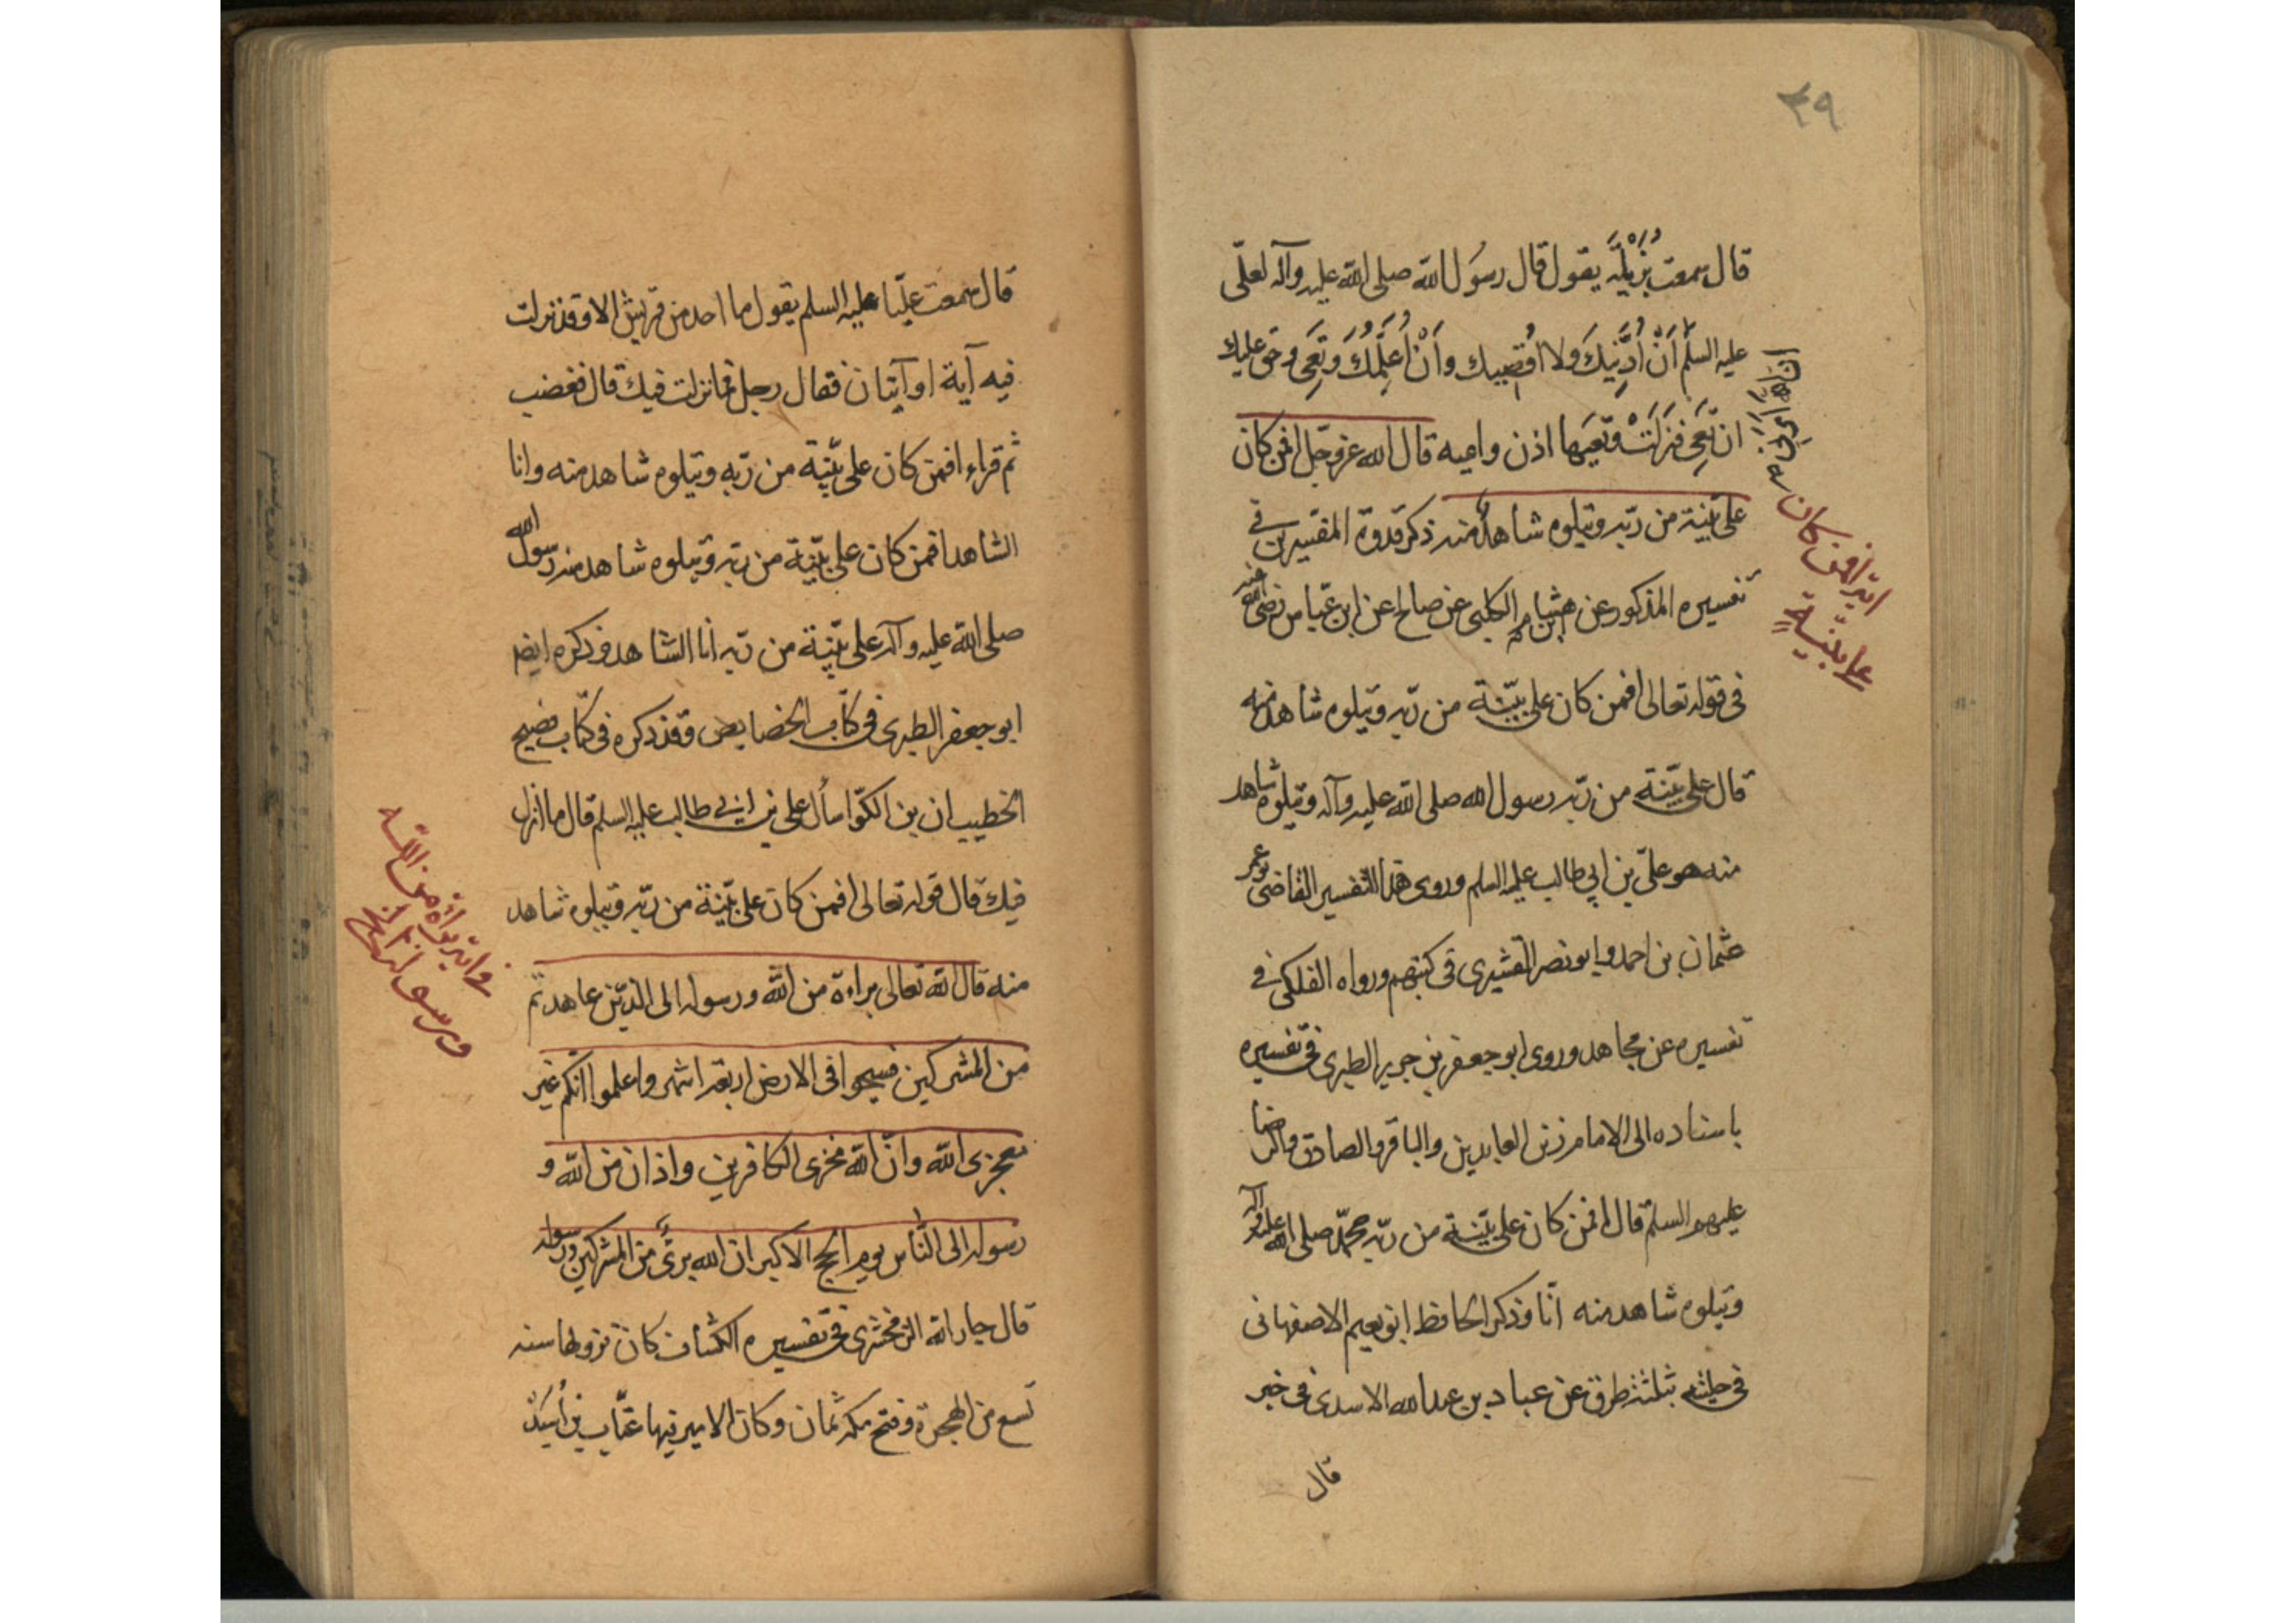 ٣٩
قال سمعت بُرَيْدَة يقول قال رسول الله صلى الله عليه وآله لعلّى
عليه السلم أَنْ أُدْنِيَكَ ولا أُقصيك وأَنْ أُعَلِّمُكَ وتَعِى وحق عليك
ان تَعِى فنزلَتْ وتَعِيَها اذن واعيه قال الله عزوجل افمن كان
على بيّنة من ربّه ويتلوه شاهدٌ منه ذكر قدوة المفسرين فى
تفسيره المذكور عن هشام الكلبى عن صالح عن ابن عبّاس رضى الله عنه
فى قوله تعالى افمن كان على بيّنة من ربّه ويتلوه شاهد منه
قال على بيّنة من ربّه رسول الله صلى الله عليه وآله ويتلوه شاهد
منه هو علىّ بن ابي طالب عليه السلم وروى هذا التفسير القاضى ابو عمر
عثمان بن احمد وابو نصر القشيرى فى كتبهم ورواه الفلكى فى
تفسيره عن مجاهد وروى ابو جعفر بن جرير الطبرى فى تفسيره
باسناده الى الامام زين العابدين والباقر والصادق والرضا
عليهم السلم قال افمن كان على بيّنة من ربّه محمّد صلى الله عليه وآله
ويتلوه شاهد منه انا وذكر الحافظ ابو نعيم الاصفهانى
فى حليته بثلثة طرق عن عباد بن عبد الله الاسدى فى خبر
قال
اية افمن كان
على بيّنةٍ
قال سمعت عليّا عليه السلم يقول ما احد من قريش الا وقد نزلت
فيه آية او آيتان فقال رجل فما نزلت فيك قال فغضب
ثم قراء افمن كان على بيّنة من ربّه ويتلوه شاهد منه وانا
الشاهد افمن كان على بيّنة من ربّه ويتلوه شاهد منه رسول الله
صلى الله عليه وآله على بيّنة من ربّه أنا الشاهد وذكره ايضا
ابو جعفر الطبرى فى كتاب الخصايص وقد ذكره فى كتاب فصيح
الخطيب ان بن الكوّا سأل على بن ابى طالب عليه السلم قال ما انزل
فيك قال قوله تعالى افمن كان على بيّنة من ربّه ويتلوه شاهد
منه قال الله تعالى براءة من الله ورسوله الى الذين عاهدتم
من المشركين فسيحوا فى الارض اربعة اشهر واعلموا انكم غير
معجزى الله وانّ الله مخزى الكافرين واذان من الله و
رسوله الى النّاس يوم الحج الاكبر ان الله برئ من المشركين ورسوله
قال جار الله الزمخشرى فى تفسيره الكشاف كان نزولها سنه
تسع من الهجرة وفتح مكه ثمان وكان الامير فيها عتّاب بن أَسيد
واية براءة من الله
ورسوله